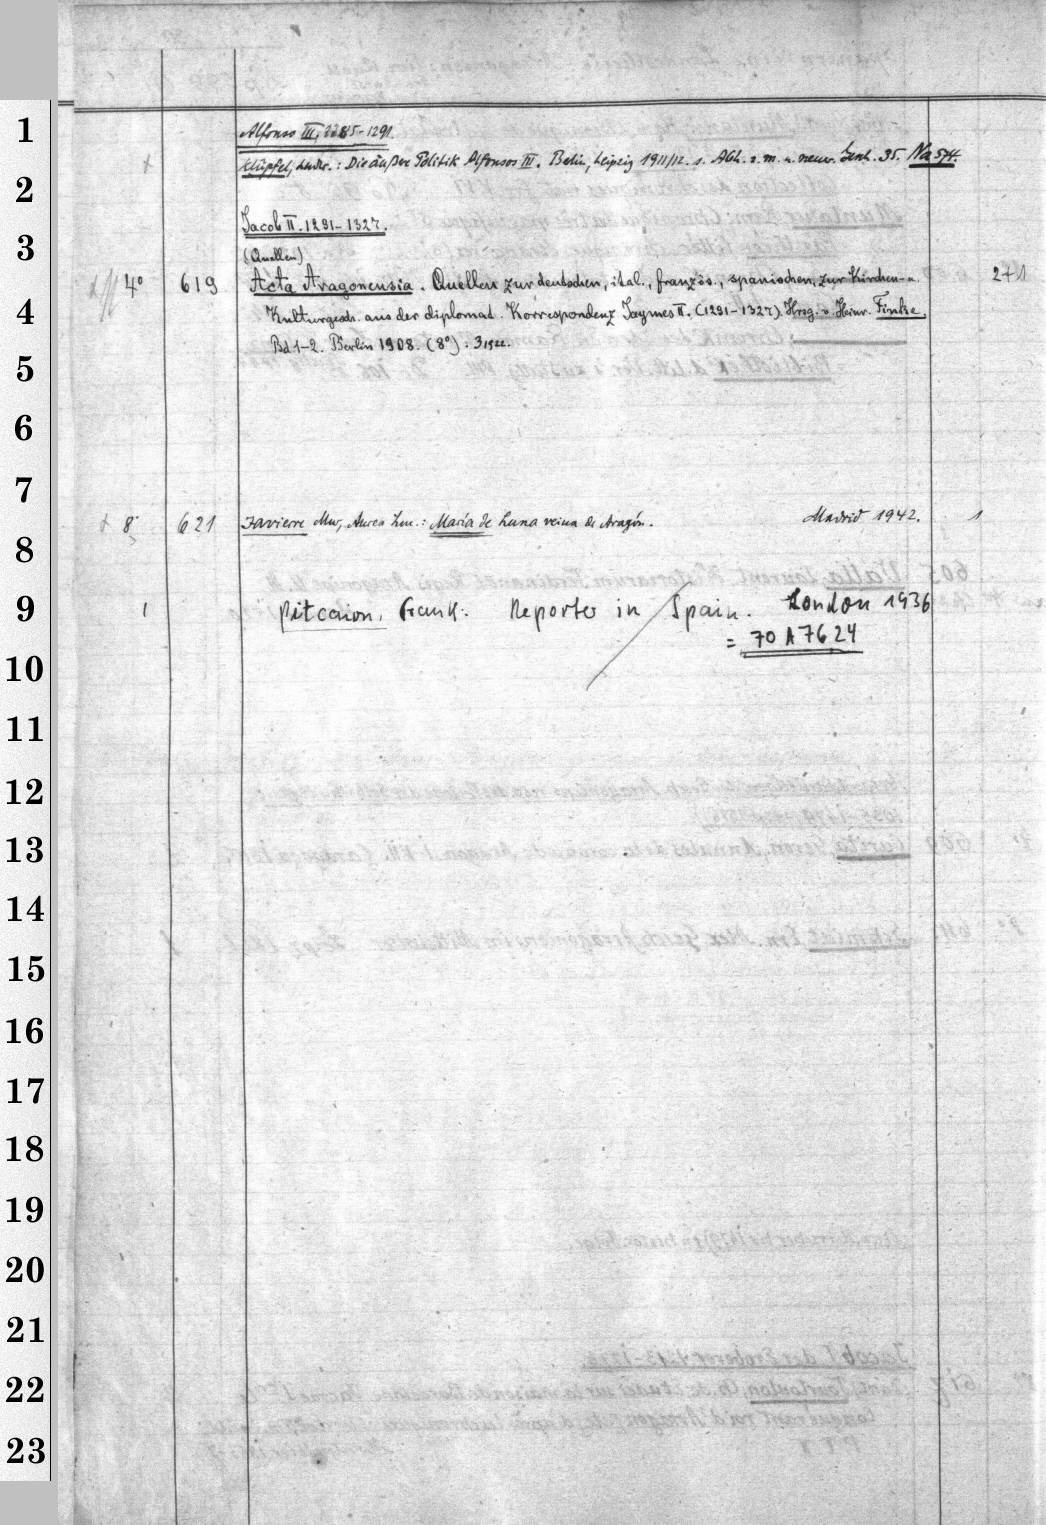 1
2
3
4
5
6
7
8
9
10
11
12
13
14
15
16
17
18
19
20
21
22
23
Alfonso III. 1285-1291.
Klüpfel, Ludw.: Die äußere Politik Alfonsos III. Berlin, Leipzig 1911/12. s. Abh. z. m. u. neuer. Gesch. 35. Na 574.
Jacob II. 1291-1327.
(Quellen)
4° 619 Acta Aragonensia. Quellen zur deutschen, ital., französ., spanischen, zur Kirchen- u. 2+1
Kulturgesch. aus der diplomat. Korrespondenz Jaymes II. (1291-1327). Hrsg. v. Heinr. Finke.
Bd 1-2. Berlin 1908. (8°). 3 1922.
8° 621 Javierre Mur, Aurea Luc.: María de Luna reina de Aragón. Madrid 1942. 1
1 Pitcairn, Frank: Reporter in Spain. London 1936
= 70 A 7624